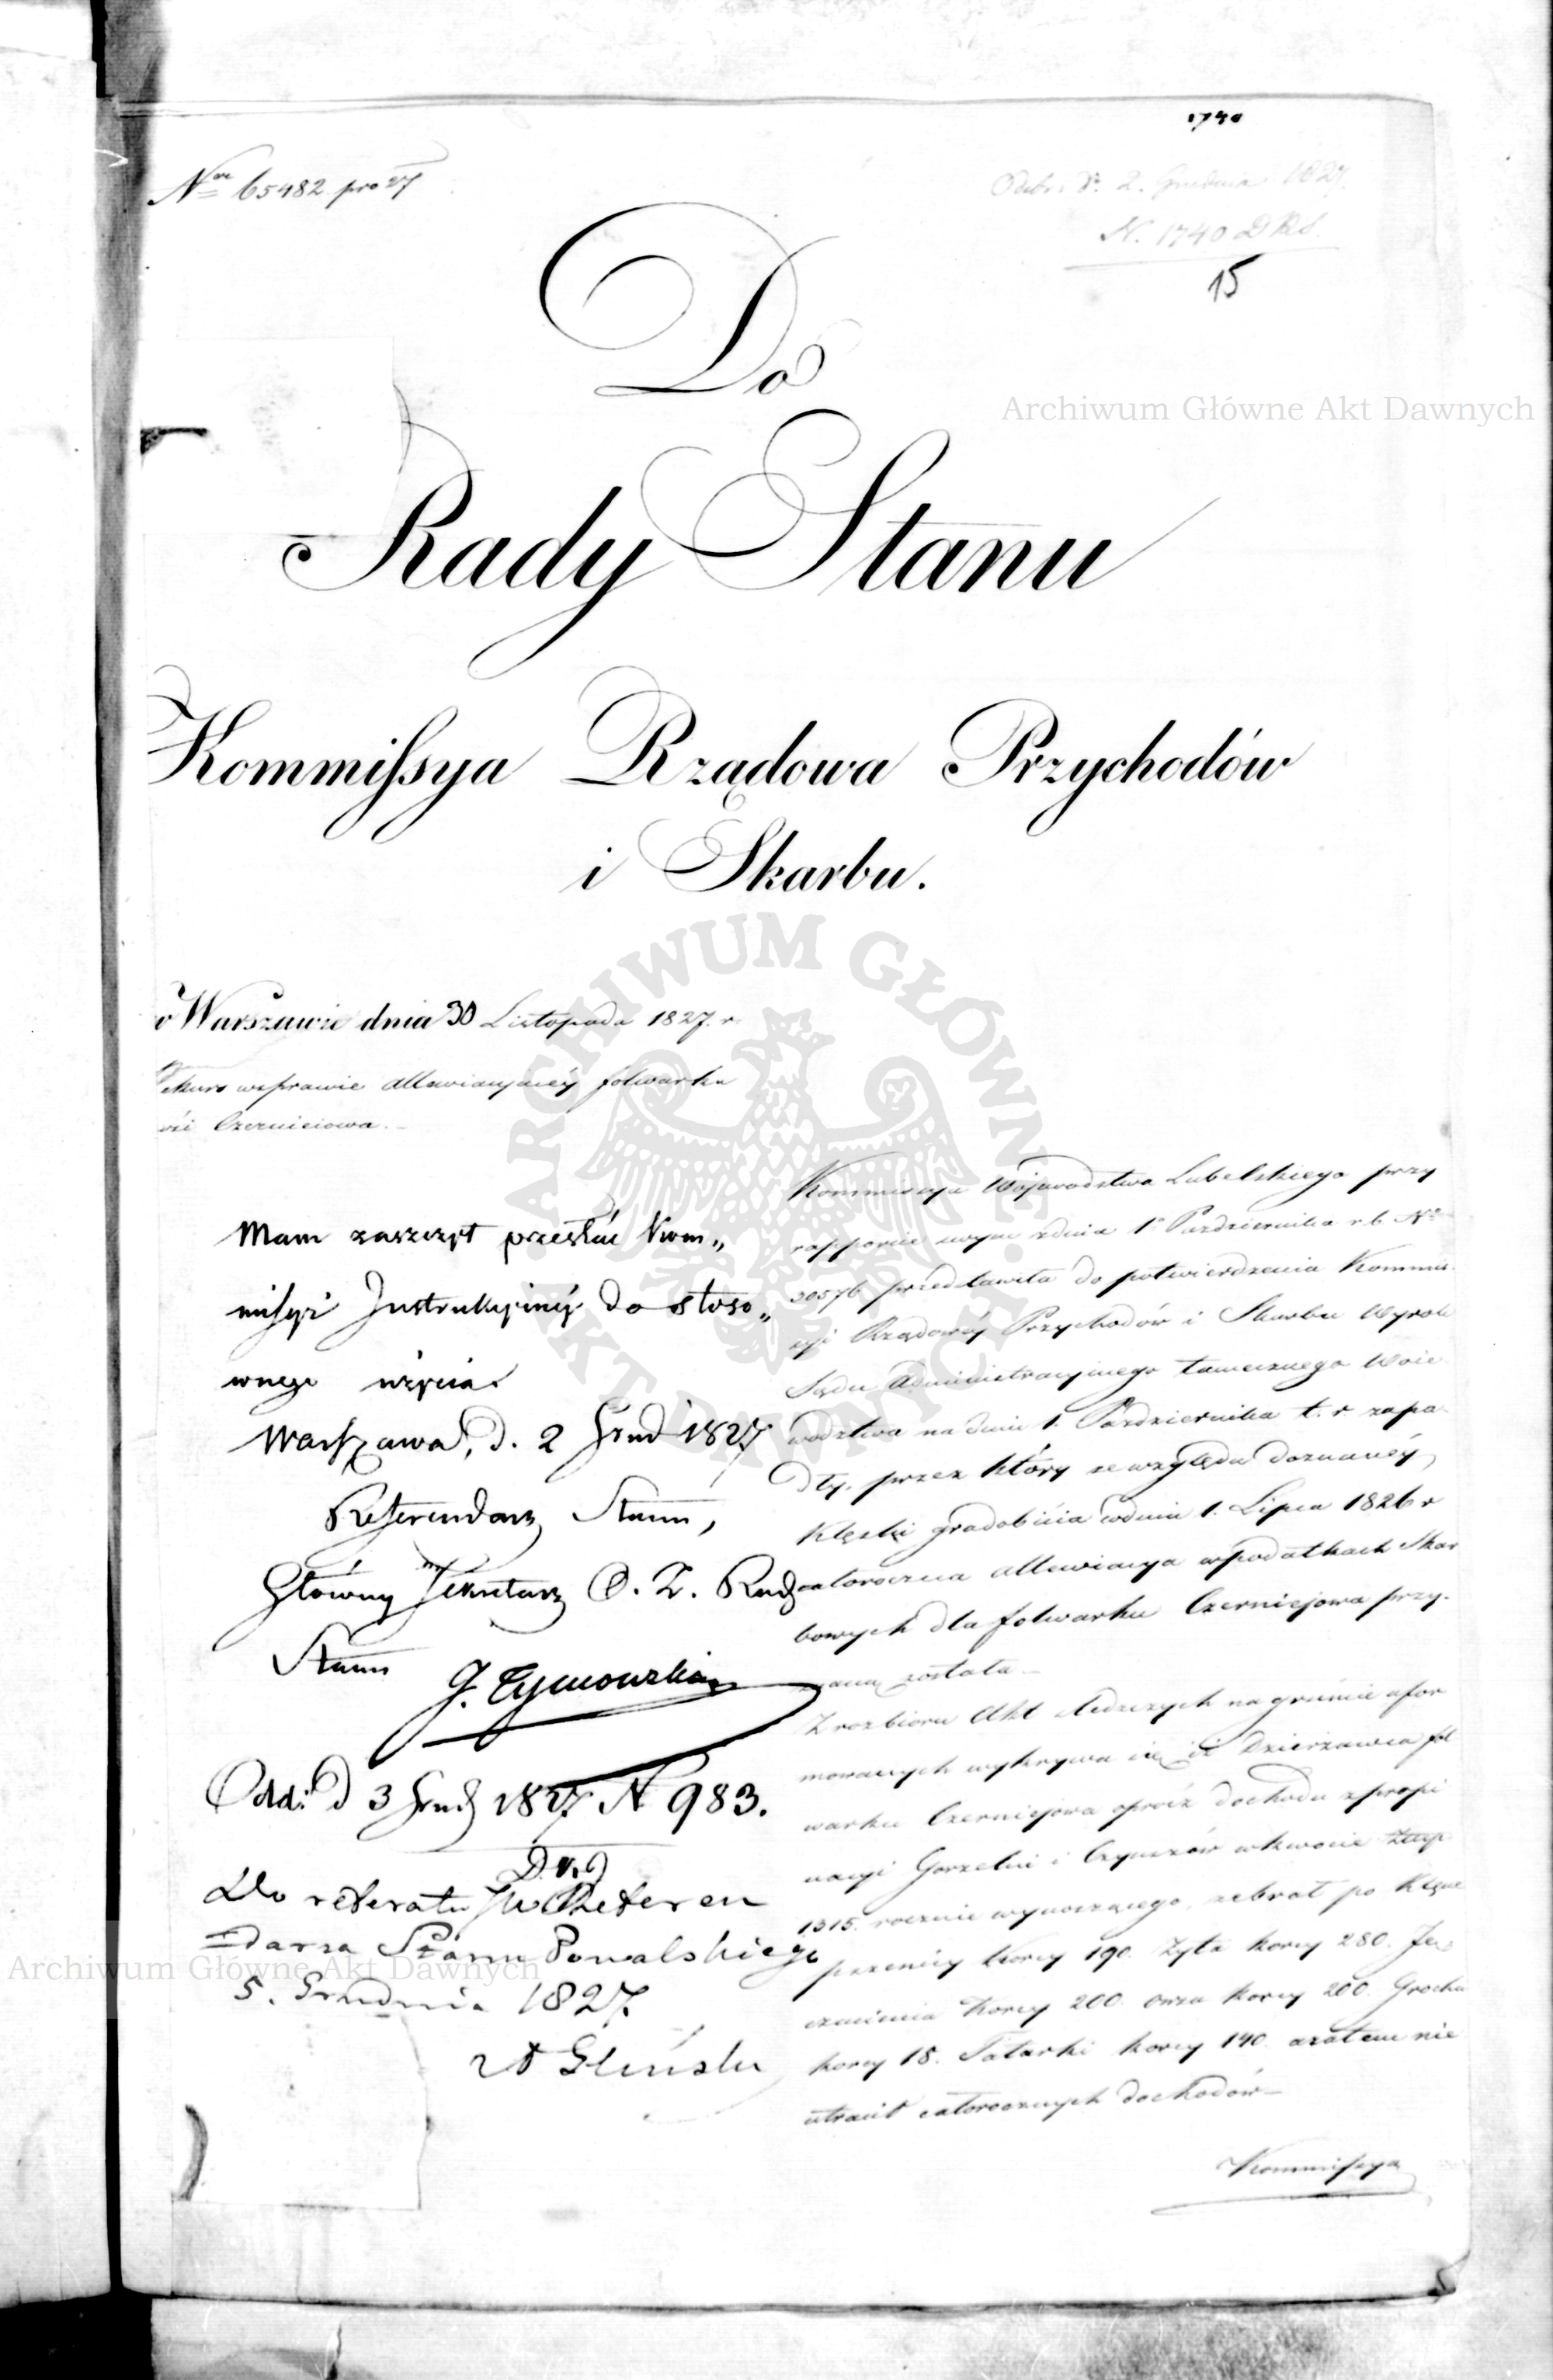 1740
Nro 65482 pro 27
Odebr. d. 2. Grudnia 1827.
N. 1740 D.R.S.
15
Do
Rady Stanu
Kommissya Rządowa Przychodów
i Skarbu.
Warszawie dnia 30 Listopada 1827. r.
wsprawie allewiacyinéy folwarku
Czerniejowa.
Mam zaszczyt przesłać Kom„
missyi Instrukcyinéy do stoso„
wnego użycia.
Warszawa, d. 2 Grud 1827
Referendarz Stanu,
Główny Sekretarz O. Z. Rady
Stanu J. Tymowski
Odd: d 3 Grud 1827 N 983.
Do referatu JW Referen
darza Stanu Powalskiego
5. Grudnia 1827.
Gliński
Kommissya Województwa Lubelskiego przy
rapporcie swym zdnia 1o Października r.b. Nro
30576 przedstawiła do potwierdzenia Kommis
syi Rządowéy Przychodów i Skarbu Wyrok
Sądu Administracyjnego tamecznego Woie
wodztwa na dniu 1. Października t. r. zapa
dły, przez który ze względu doznanéy
Klęski gradobicia w dniu 1. Lipca 1826 r
całoroczna allewiacya w podatkach Skar
bowych dla folwarku Czerniejowa przy-
znaną została.
Z rozbioru Akt śledczych na gruncie ufor
mowanych wykrywa się iż Dzierżawca fol
warku Czerniejowa oprócz dochodu z propi
nacyi Gorzelni i Czynszów w kwocie Złtp
1315. rocznie wynoszącego, zebrał po Klęsce
pszenicy korcy 190. Żyta korcy 280. Ję
czmienia korcy 200. owsa korcy 200. Grochu
korcy 18. Tatarki korcy 140. a zatem nie
utracił całorocznych dochodów
Kommissya
Archiwum Główne Akt Dawnych
Archiwum Główne Akt Dawnych
ARCHIWUM GŁÓWNE AKT DAWNYCH